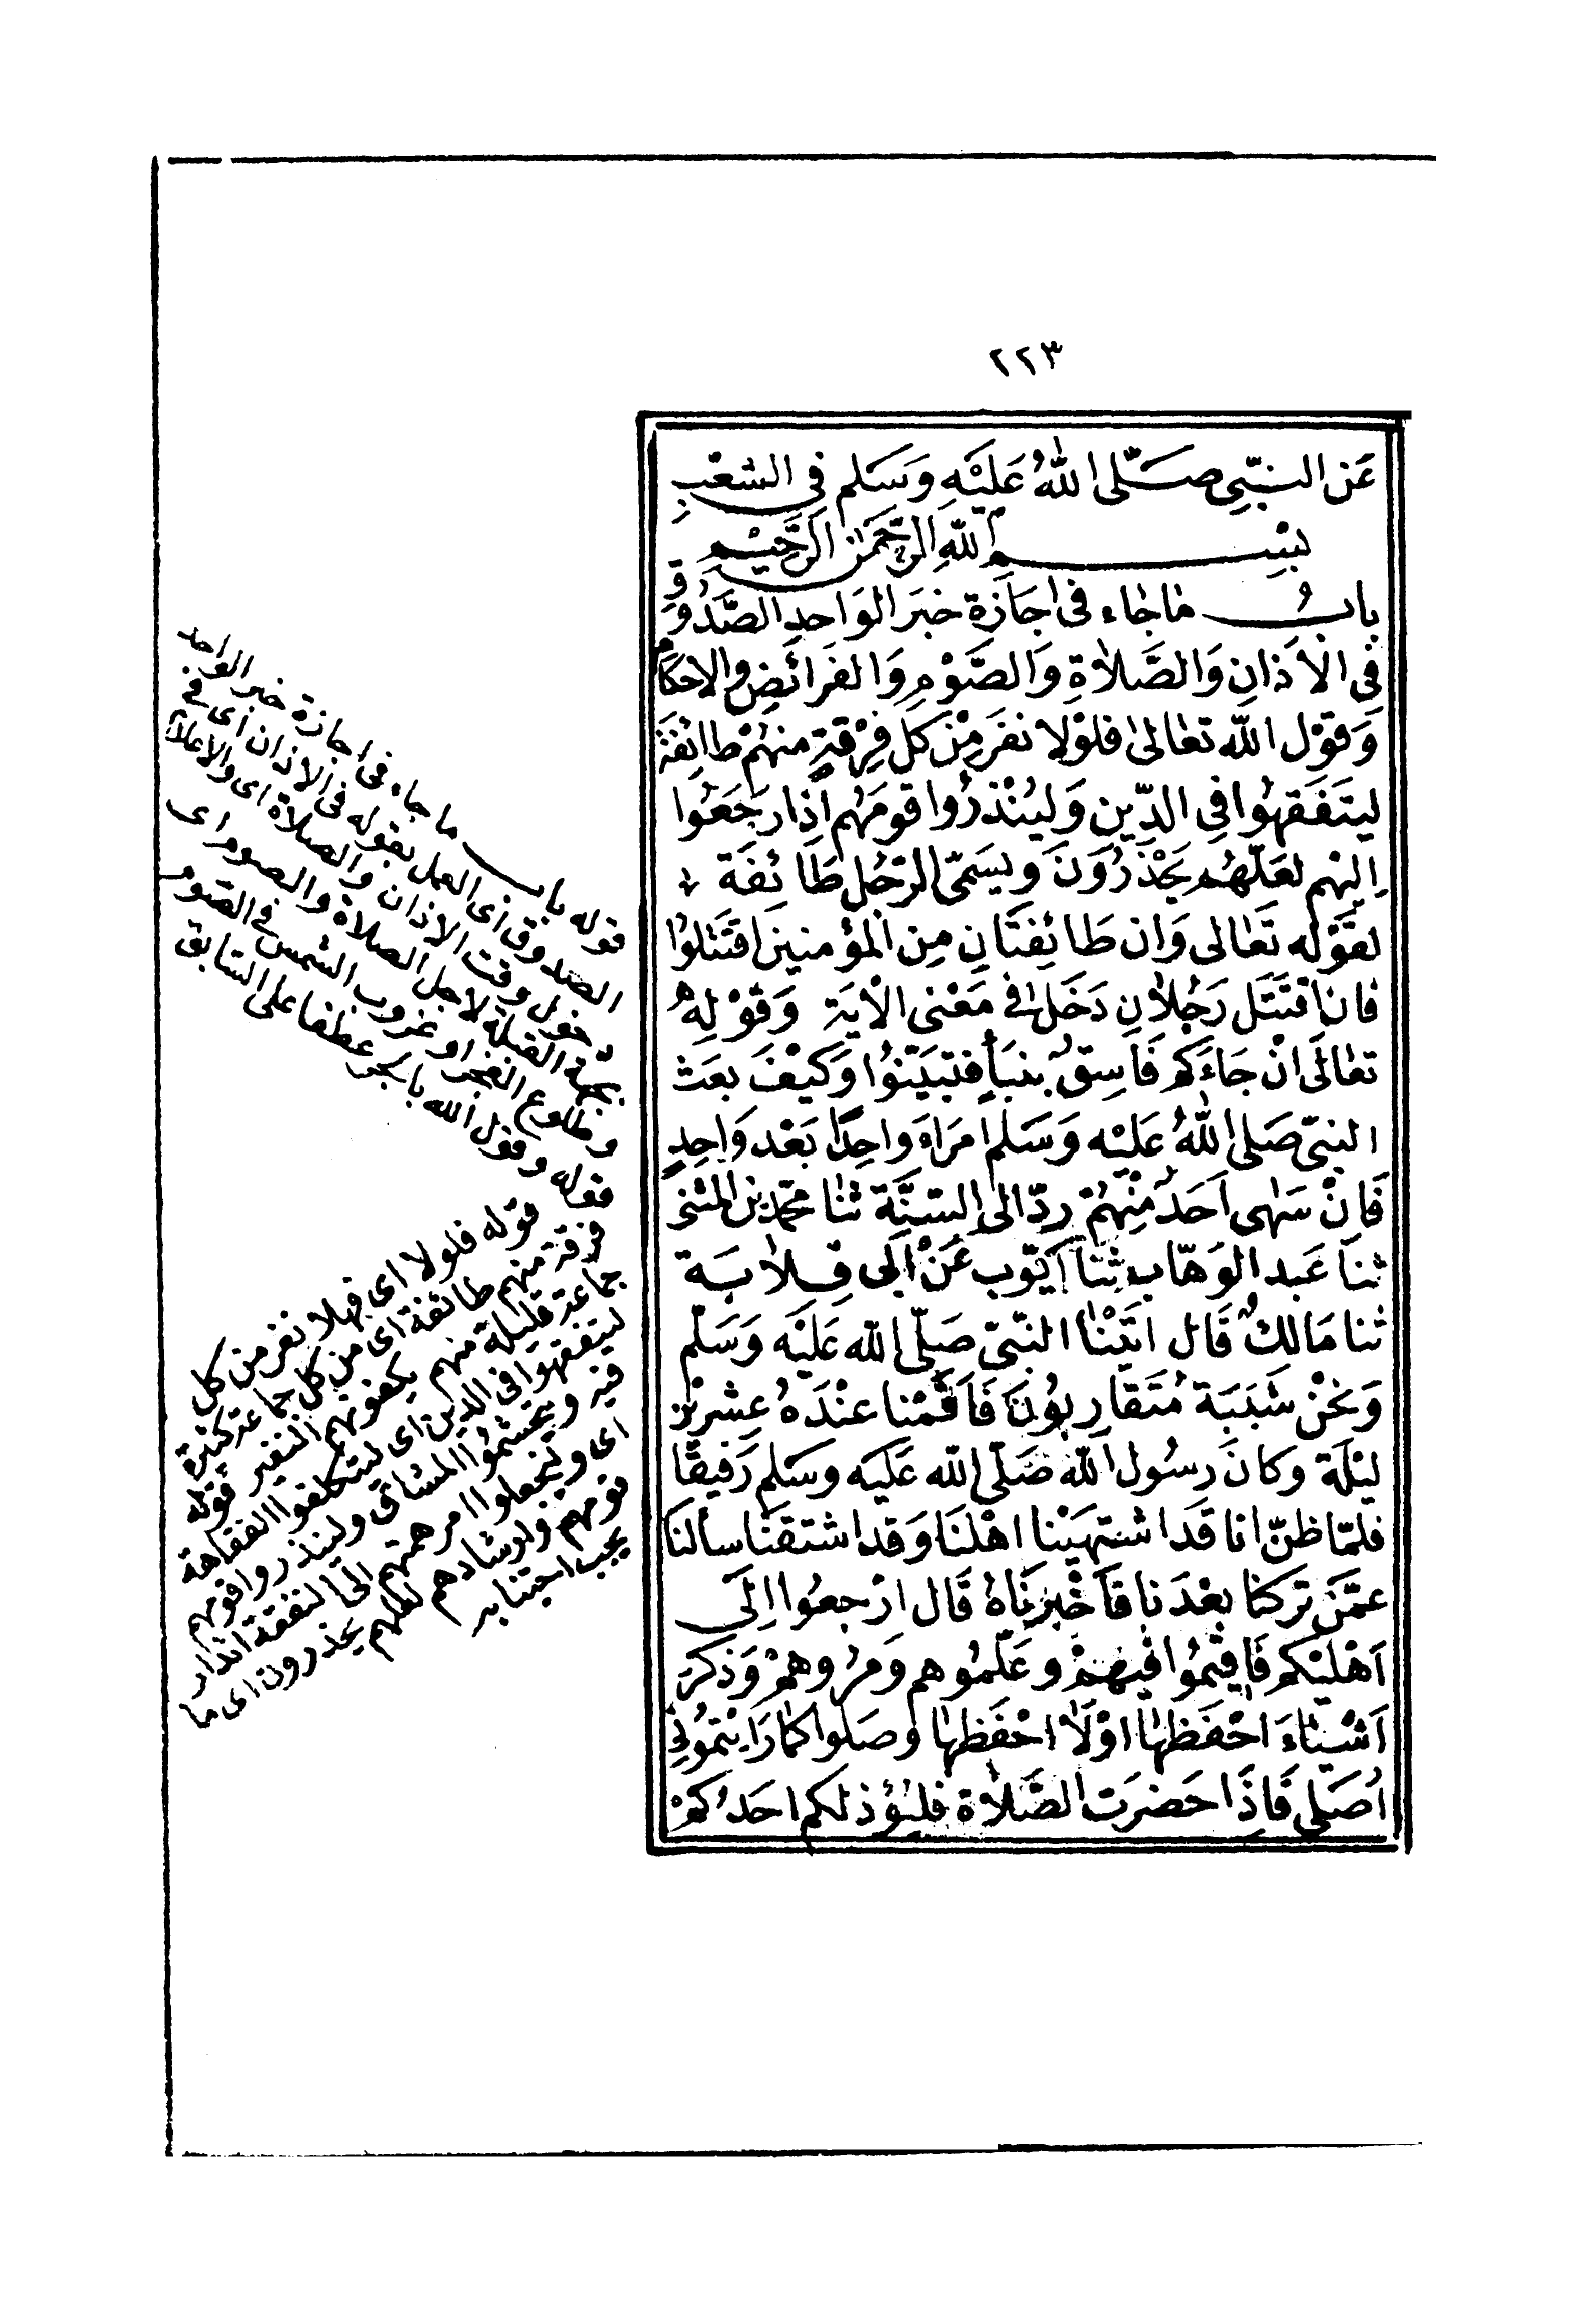 ٢٢٣
عَن النبّى صَلّى اللّٰهُ عَلَيْهِ وَسَلم فِى الشعْبِ
بسْمِ اللّٰهِ الرّحمٰن الرَّحِيْم
بابُ مٰا جٰاء فى اجَازَة خبَر الوَاحدِ الصَّدُوقِ
فِى الاَذانِ وَالصَّلاٰةِ وَالصَّوْمِ وَالفَرائضِ والاحكَام
وَقوْل اللّٰه تعٰالىٰ فلوْلا نفَر مِنْ كل فِرْقةٍ منهُمْ طائفَة
ليتَفَقهُوا فِى الدِّينِ وَليُنْذرُوا قومَهُم اذِا رَجَعُوا
اِليْهم لعَلّهُم يَحْذرُوَنَ وَليسَمّى الرّجُل طَائفَة
لقَوْله تَعٰالى وَان طَائفتَانِ مِن المؤمنينَ اقتَتلوُا
فان اقتَتَل رَجُلاٰنِ دَخَلٰا فى مَعْنى الاٰيَة وَقوْ لِهِ
تعٰالىَ انْ جَاءَكم فَاسِقٌ بنبَأٍ فتبَيّنوُا وَكيْفَ بعَث
النبىّ صَلى اللّٰهُ عَليْه وَسَلم امَرَاهَ واحِدًا بَعْد وَاحِدٍ
فَانْ سَهٰى اَحَدٌ مِنْهُمْ ردّ الى السّنَّة ثنٰا محمّد بن المثنى
ثنا عَبد الوَهّاب ثنا ايّوب عَنْ ابى قِلاٰبَة
ثنا مَالكٌ قَال اتَيْنٰا النبّىّ صَلّى اللّٰه عَليْه وَسَلّم
وَنحْن شَبَبَة مُتَقَارِبُونَ فَاَقمْنا عنْدَهُ عِشرِيْن
ليْلَة وكانَ رسُول اللّٰه صَلّى اللّٰه عَلَيه وسَلم رَفيقًا
فلمّا ظنّ انا قَد اشتهَيْنا اهْلنَا وَقد اشتقنَا سألنَا
عمَّنَ تركنا بعْدَنا فاَخْبرْنَاهُ قَال ارْجعُوا اِلىَ
اَهْليْكم فَاقيمُوا فيهمْ وعَلّمُوهم وَمرُوهمْ وَذكرَ
اَشْيٰاءَ احْفَظهٰا اوْلاَ احْفَظهٰا وصَلوا كمٰا رَايْتمُونِى
اُصَلى فَاِذَا حَضرَت الصَّلاٰة فليُؤذ لكم احَدُكمْ
قوله باب ما جاء فى اجازة خبر الواحد
الصدوق اى العمل بقوله فى الاذان اى فى
دخول وقت الاذان والصلاة اى والاعلام
بجهة القبلة لاجل الصلاة والصوم اى
وطلوع الفجر او غروب الشمس فى الصوم
قوله وقول الله بالجر عطفا على السابق
قوله فلولا اى فهلا نفر من كل
فرقة منهم طائفة اى من كل جماعة كثيرة
جماعة قليلة منهم يكفونهم النفير قوله
ليتفقهوا فى الدين اى ليتكلفوا الفقاهة
فيه ويتجشموا المشاق ولينذروا قومهم
اى وليجعلوا مرهمتهم الى التفقة انذار
قومهم وارشادهم لعلهم يحذرون اى ما
يجب اجتنابه